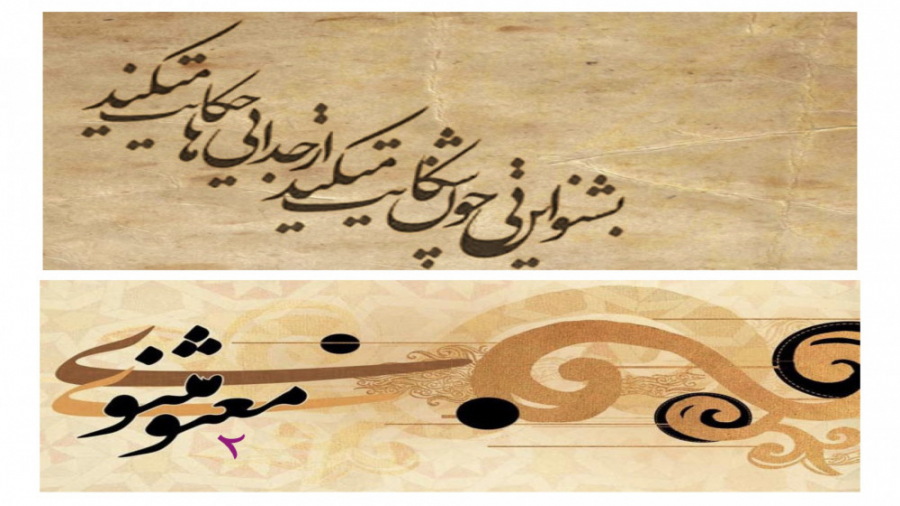 بشنو این نی چون شکایت میکند
از جدایی ها حکایت میکند
مثنوی
معنوی
۲